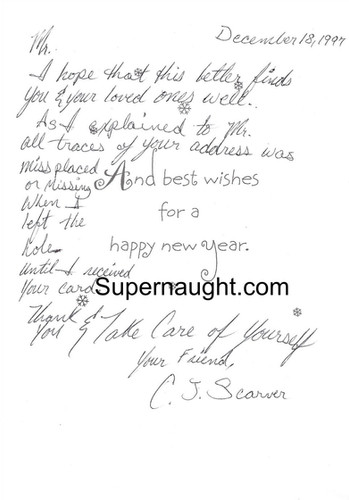 December 18, 1997
Mr.
I hope that this letter finds
you & your loved ones well..
As I explained to Mr.
all traces of your address was
missplaced
or missing
when I
left the
hole
until I received
your card
And best wishes
for a
happy new year.
Supernaught.com
Thank &
You & Take Care of Yourself
Your Friend,
C. J. Scarver